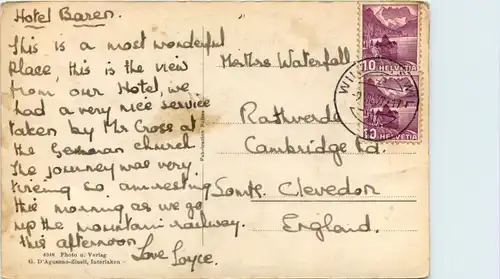 Hotel Baren.
This is a most wonderful
place, this is the view
from our Hotel, we
had a very nice service
taken by Mr Cross at
the German church
The journey was very
tireing so am resting
this morning as we go
up the mountain railway.
this afternoon
Love Joyce.
Mr & Mrs Waterfall
Rathverde
Cambridge Rd.
Somt. Clevedon
England.
10 HELVETIA
10 HELVETIA
4048 Photo u. Verlag
G. D'Aguanno-Zinsli, Interlaken